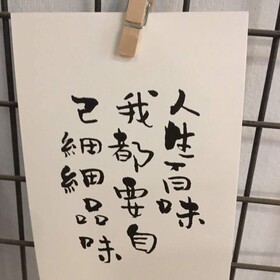 人生百味
我都要自
己細細品味